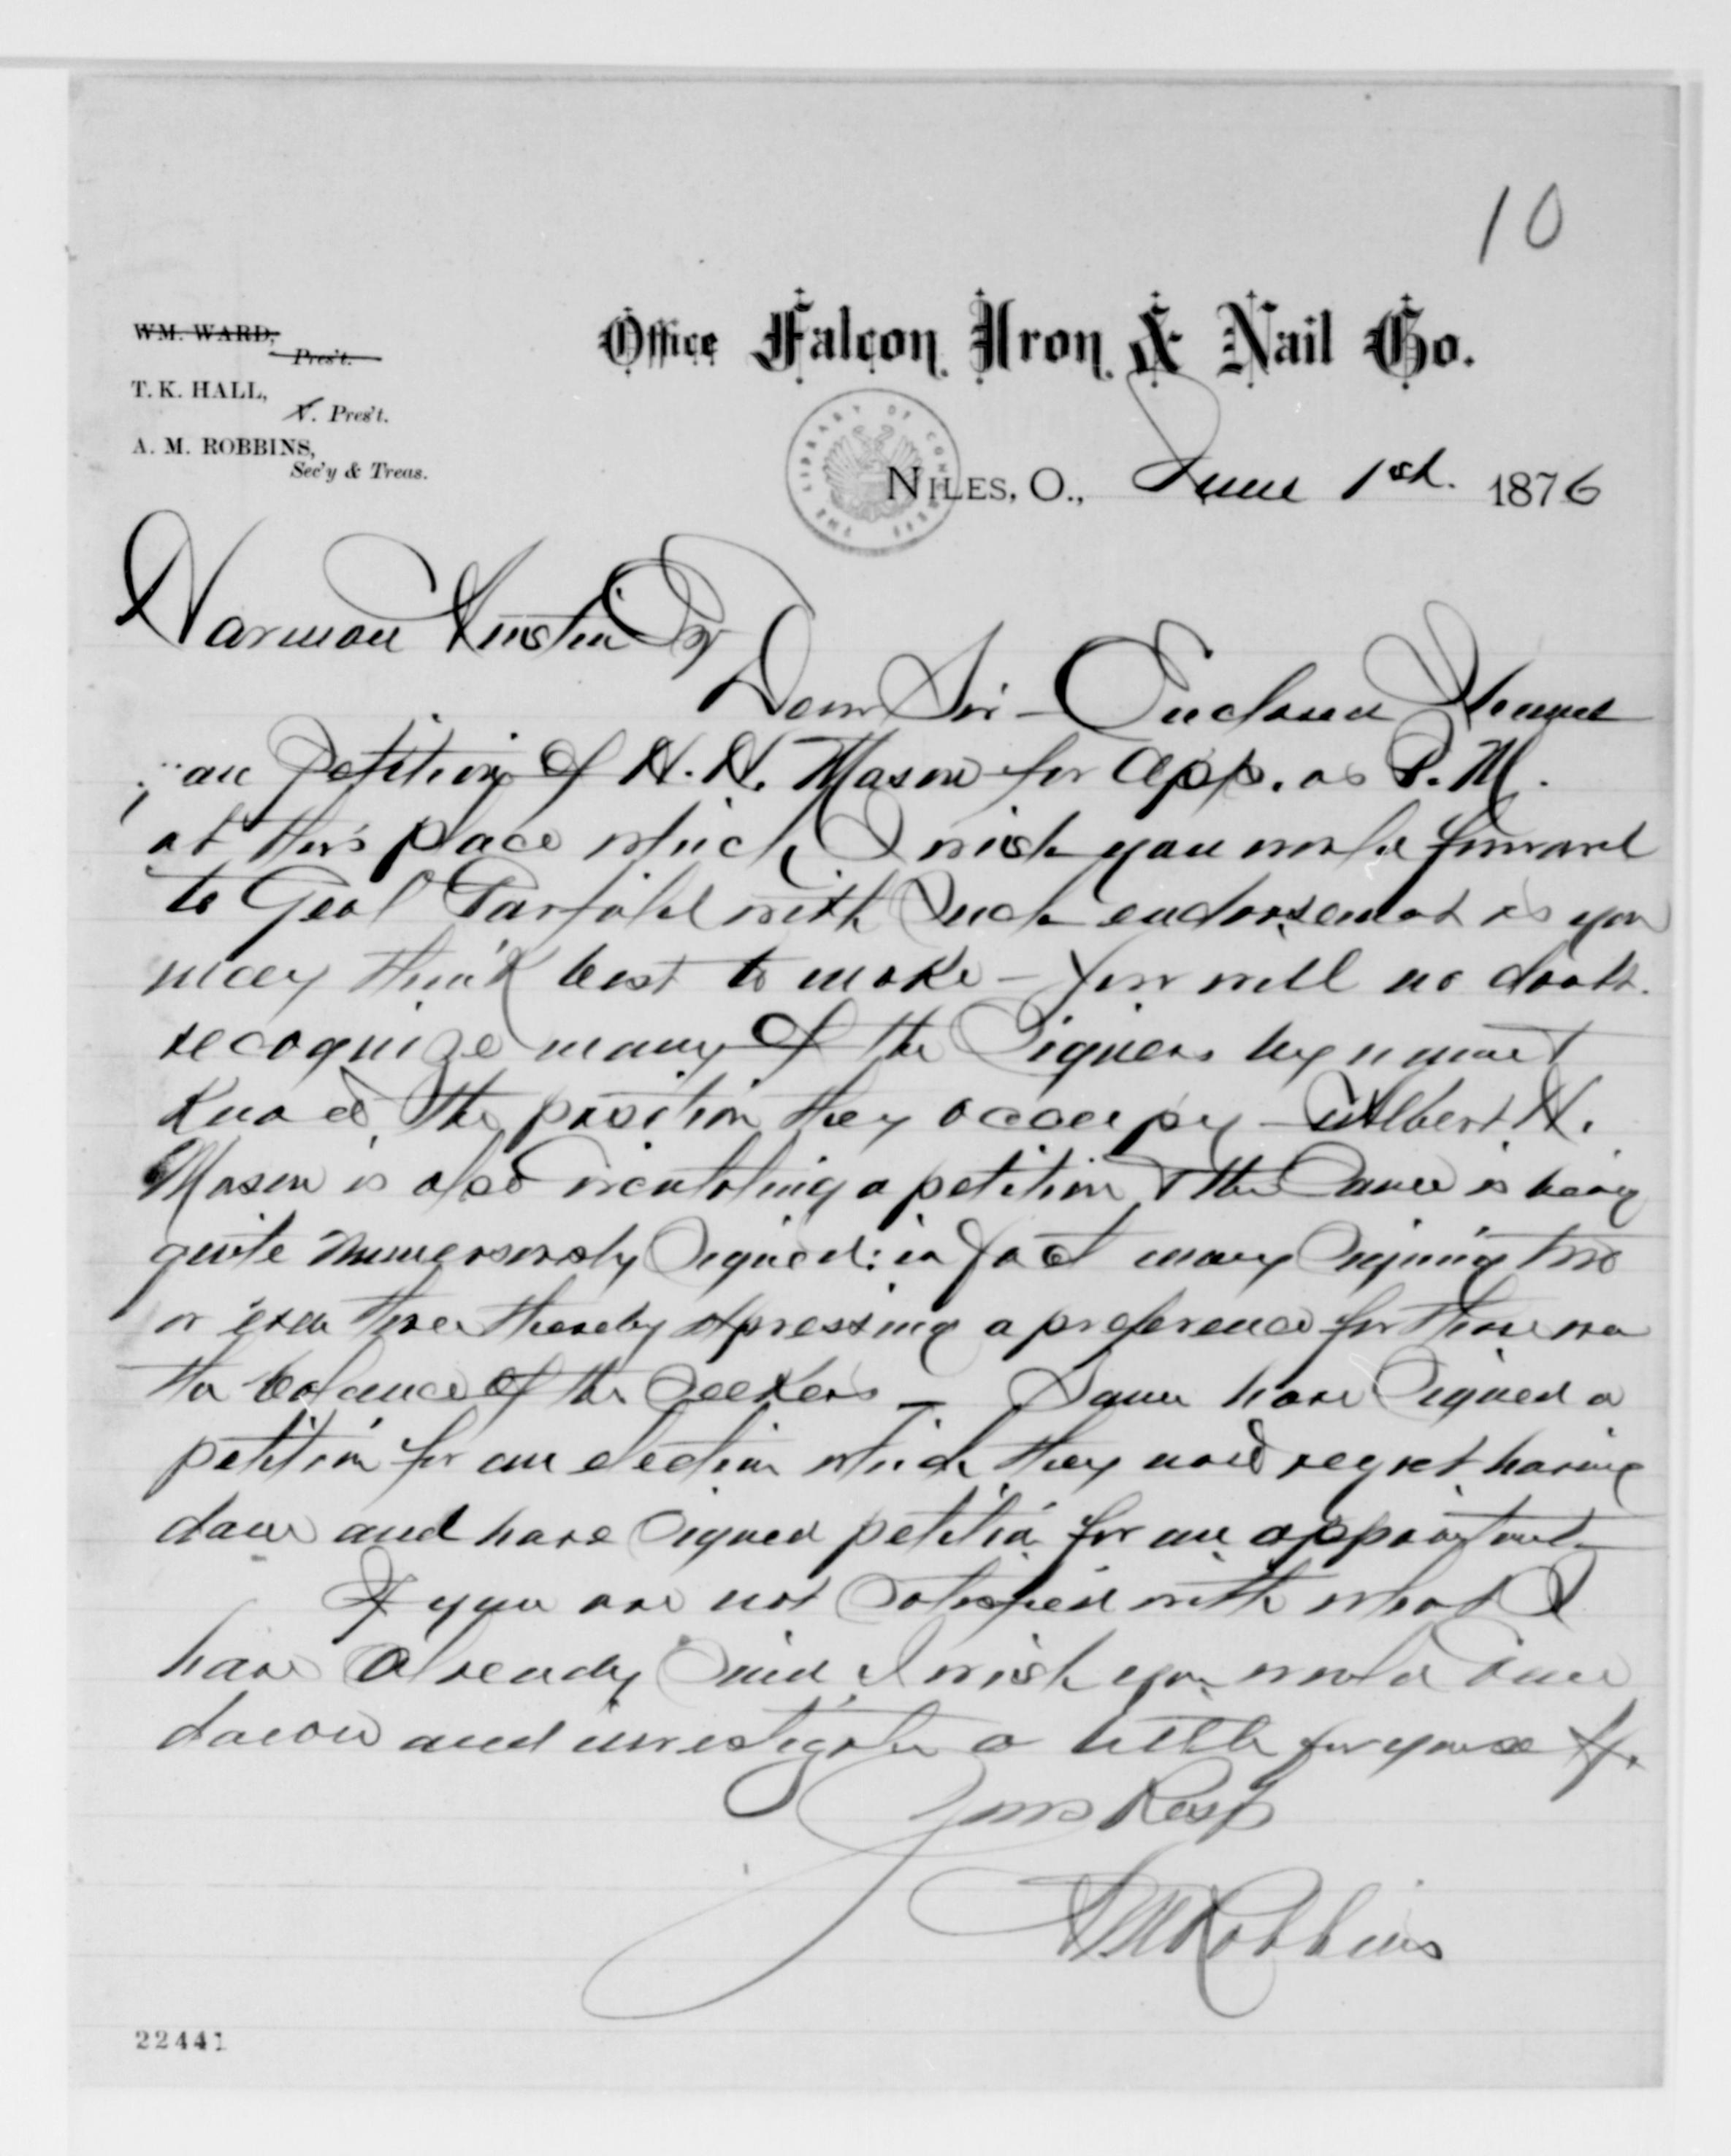 10
Office Falcon Iron & Nail Co.
WM. WARD,
Pres't.
T. K. HALL,
V. Pres't.
A. M. ROBBINS,
Sec'y & Treas.
THE LIBRARY OF CONGRESS
NILES, O., June 1st. 1876
Harmon Austin Esq
Dear Sir - Enclosed I hand
you Petition of H. H. Mason for App. as P. M.
at this place which I wish you would forward
to Genl Garfield with such endorsement as you
may think best to make - You will no doubt
recognize many of the signers by name &
know the position they occupy - Albert H.
Mason is also circulating a petition & the same is being
quite numerously signed: in fact many signing two
or even three thereby expressing a preference for those over
the balance of the seekers - Some have signed a
petition for an election which they now regret having
done and have signed petition for an appointment
If you are not satisfied with what I
have already said I wish you would come
down and investigate a little for yourself.
Yours Resp
A M Robbins
22441